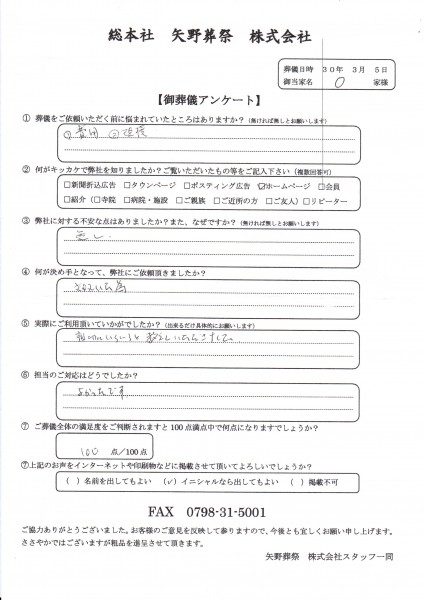 総本社 矢野葬祭 株式会社
葬儀日時 30年 3月 5日
御当家名 O 家様
【御葬儀アンケート】
① 葬儀をご依頼いただく前に悩まれていたところはありますか？(無ければ無しとお願いします)
①費用 ②
② 何がキッカケで弊社を知りましたか？ご覧いただいたもの等をご記入下さい (複数回答可)
□新聞折込広告 □タウンページ □ポスティング広告 ☑ホームページ □会員
□紹介（□寺院 □病院・施設 □ご親族 □ご近所の方 □ご友人）□リピーター
③ 弊社に対する不安な点はありましたか？また、なぜですか？(無ければ無しとお願いします)
無し
④ 何が決め手となって、弊社にご依頼頂きましたか？
⑤ 実際にご利用頂いていかがでしたか？(出来るだけ具体的にお願いします)
⑥ 担当のご対応はどうでしたか？
よかったです
⑦ ご葬儀全体の満足度をご判断されますと100点満点中で何点になりますでしょうか？
100 点/100点
⑦上記のお声をインターネットや印刷物などに掲載させて頂いてよろしいでしょうか？
( ) 名前を出してもよい (✓) イニシャルなら出してもよい ( ) 掲載不可
FAX 0798-31-5001
ご協力ありがとうございました。お客様のご意見を反映して参りますので、今後とも宜しくお願い申し上げます。
ささやかではございますが粗品を進呈させて頂きます。
矢野葬祭 株式会社スタッフ一同